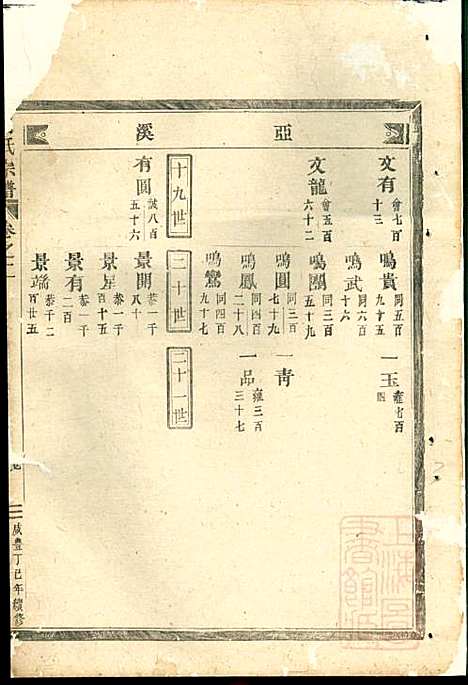 亞溪
文有 會七百十三
鳴貴 同五百九十五
一玉 雍七百
鳴武 同六百十六
文龍 會五百六十二
鳴團 同三百五十九
鳴圓 同三百七十九
一靑
鳴鳳 同四百二十八
一品 雍三百三十七
鳴鸞 同四百九十七
十九世
二十世
二十一世
有圓 誠八百五十六
景開 恭一千八十
景星 恭一千百十五
景有 恭一千二百
景端 恭千二百廿五
氏宗譜
卷之二
咸豐丁巳年續修
上海圖書館藏